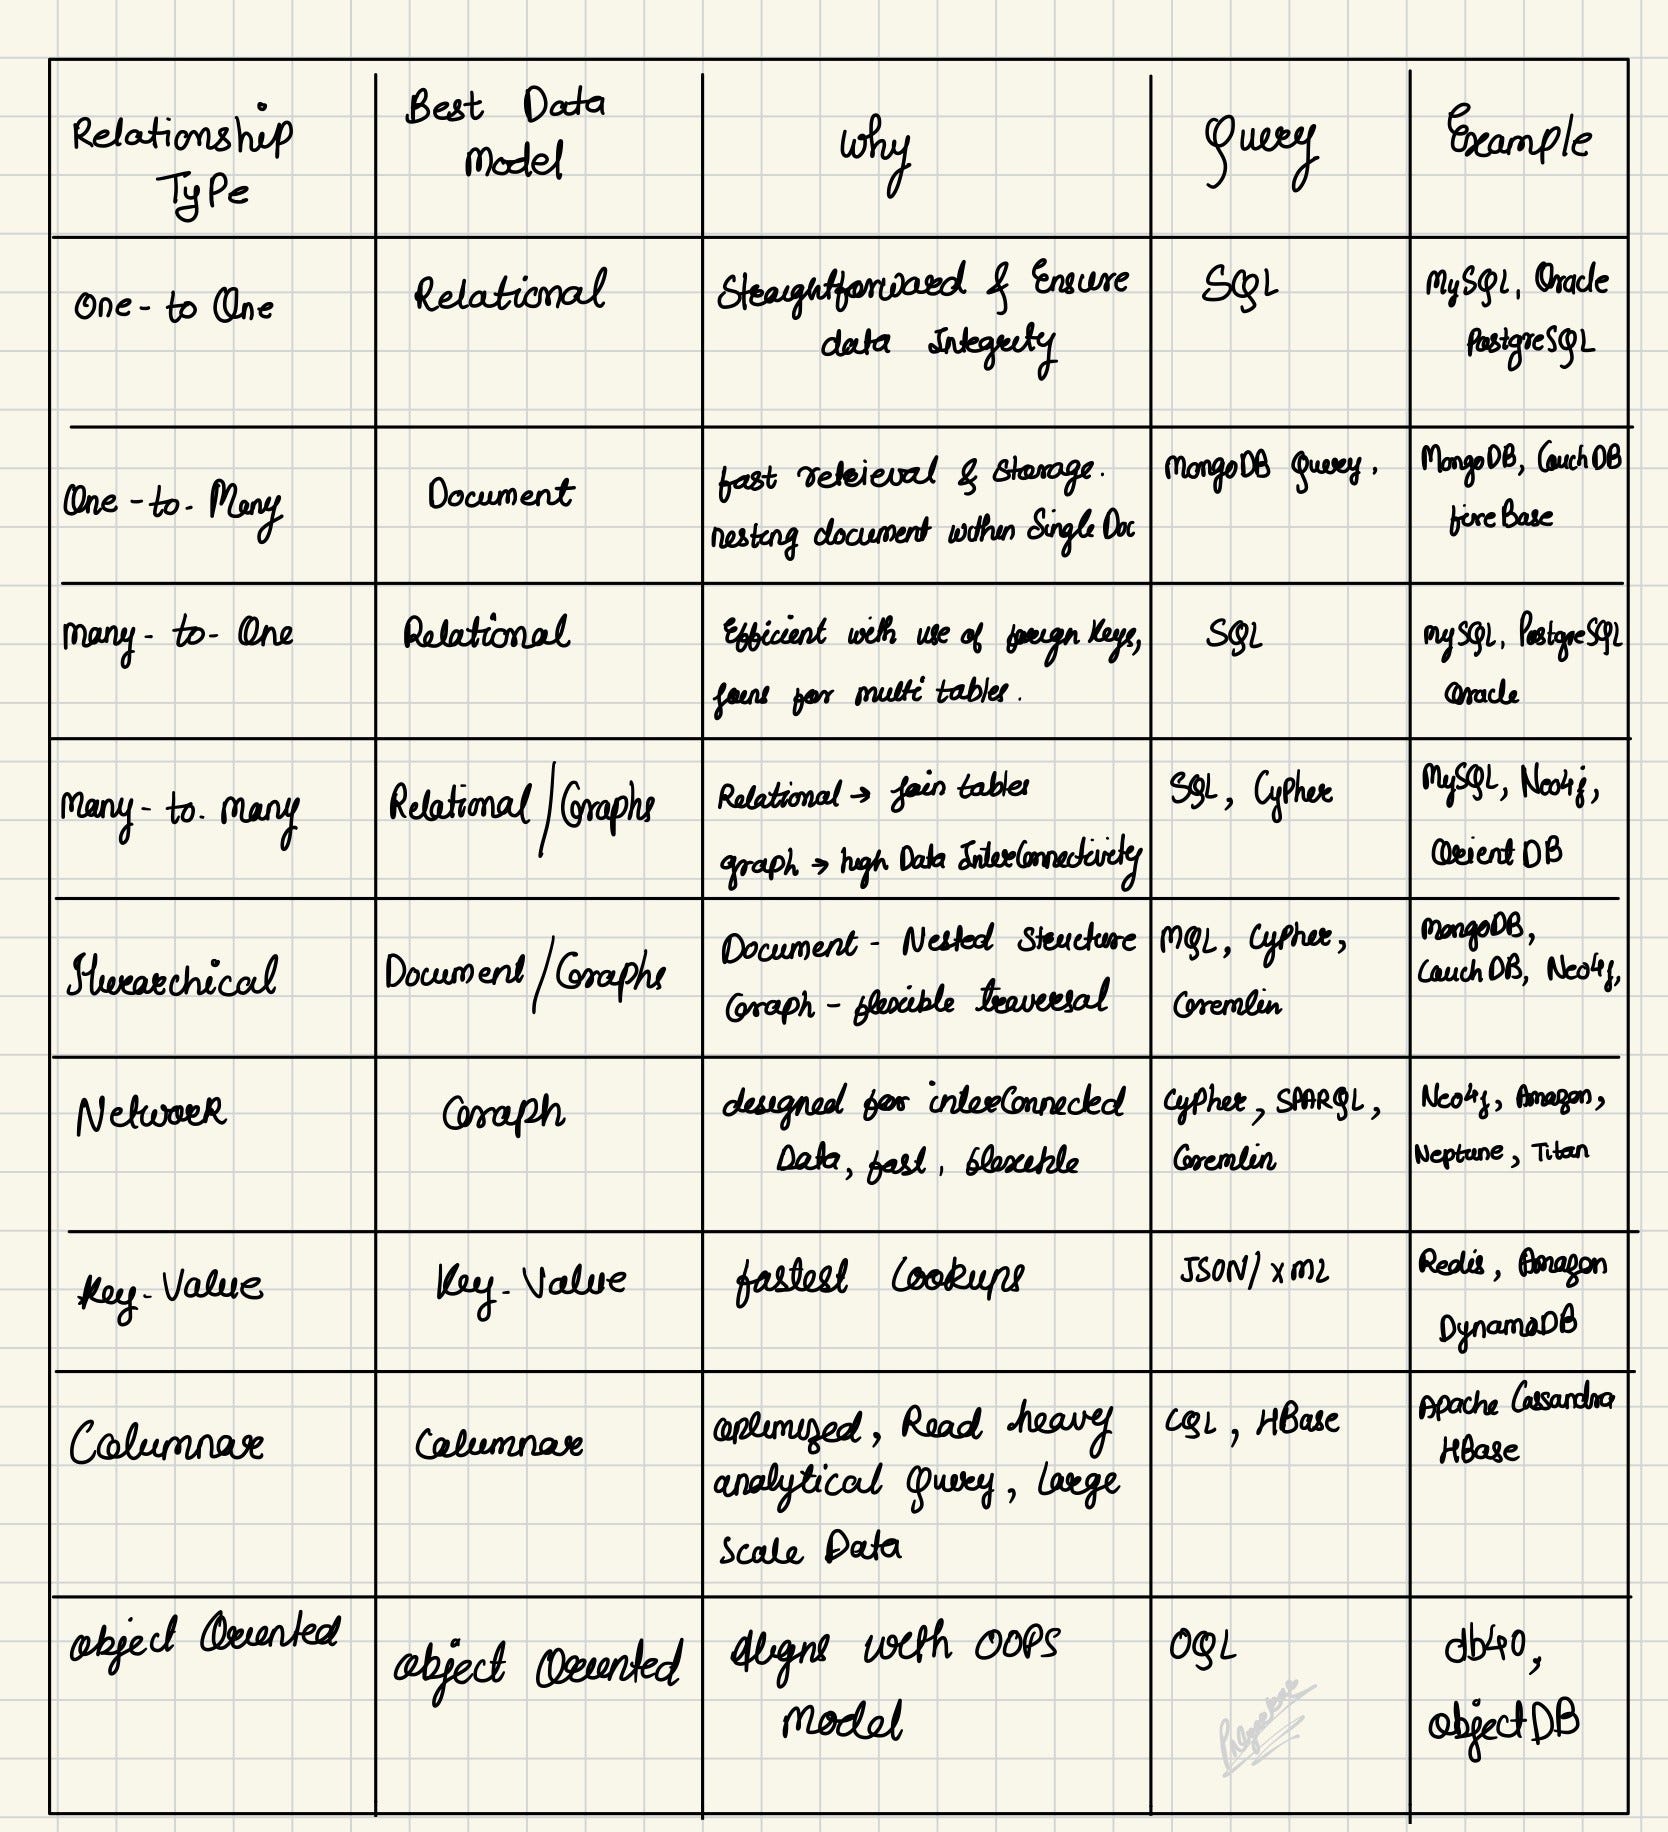 Relationship
Type
Best Data
Model
Why
Query
Example
One-to One
Relational
Straightforward & Ensure
data Integrity
SQL
MySQL, Oracle
PostgreSQL
One-to-Many
Document
fast retrieval & storage.
nesting document within Single Doc
MongoDB Query.
MongoDB, CouchDB
fireBase
many-to-One
Relational
Efficient with use of foreign Keys,
Joins for multi tables.
SQL
mySQL, PostgreSQL
Oracle
Many-to-many
Relational/Graphs
Relational → Join tables
graph → high Data InterConnectivity
SQL, Cypher
MySQL, Neo4j,
OrientDB
Hierarchical
Document/Graphs
Document - Nested Structure
Graph - flexible traversal
MQL, Cypher,
Gremlin
MongoDB,
CouchDB, Neo4j,
Network
Graph
designed for interConnected
Data, fast, flexible
Cypher, SPARQL,
Gremlin
Neo4j, Amazon,
Neptune, Titan
Key-Value
Key-Value
fastest Lookups
JSON/XML
Redis, Amazon
DynamoDB
Columnar
Columnar
optimized, Read heavy
analytical Query, Large
Scale Data
CQL, HBase
Apache Cassandra
HBase
object Oriented
object Oriented
Aligns with OOPS
Model
OQL
db4O,
objectDB